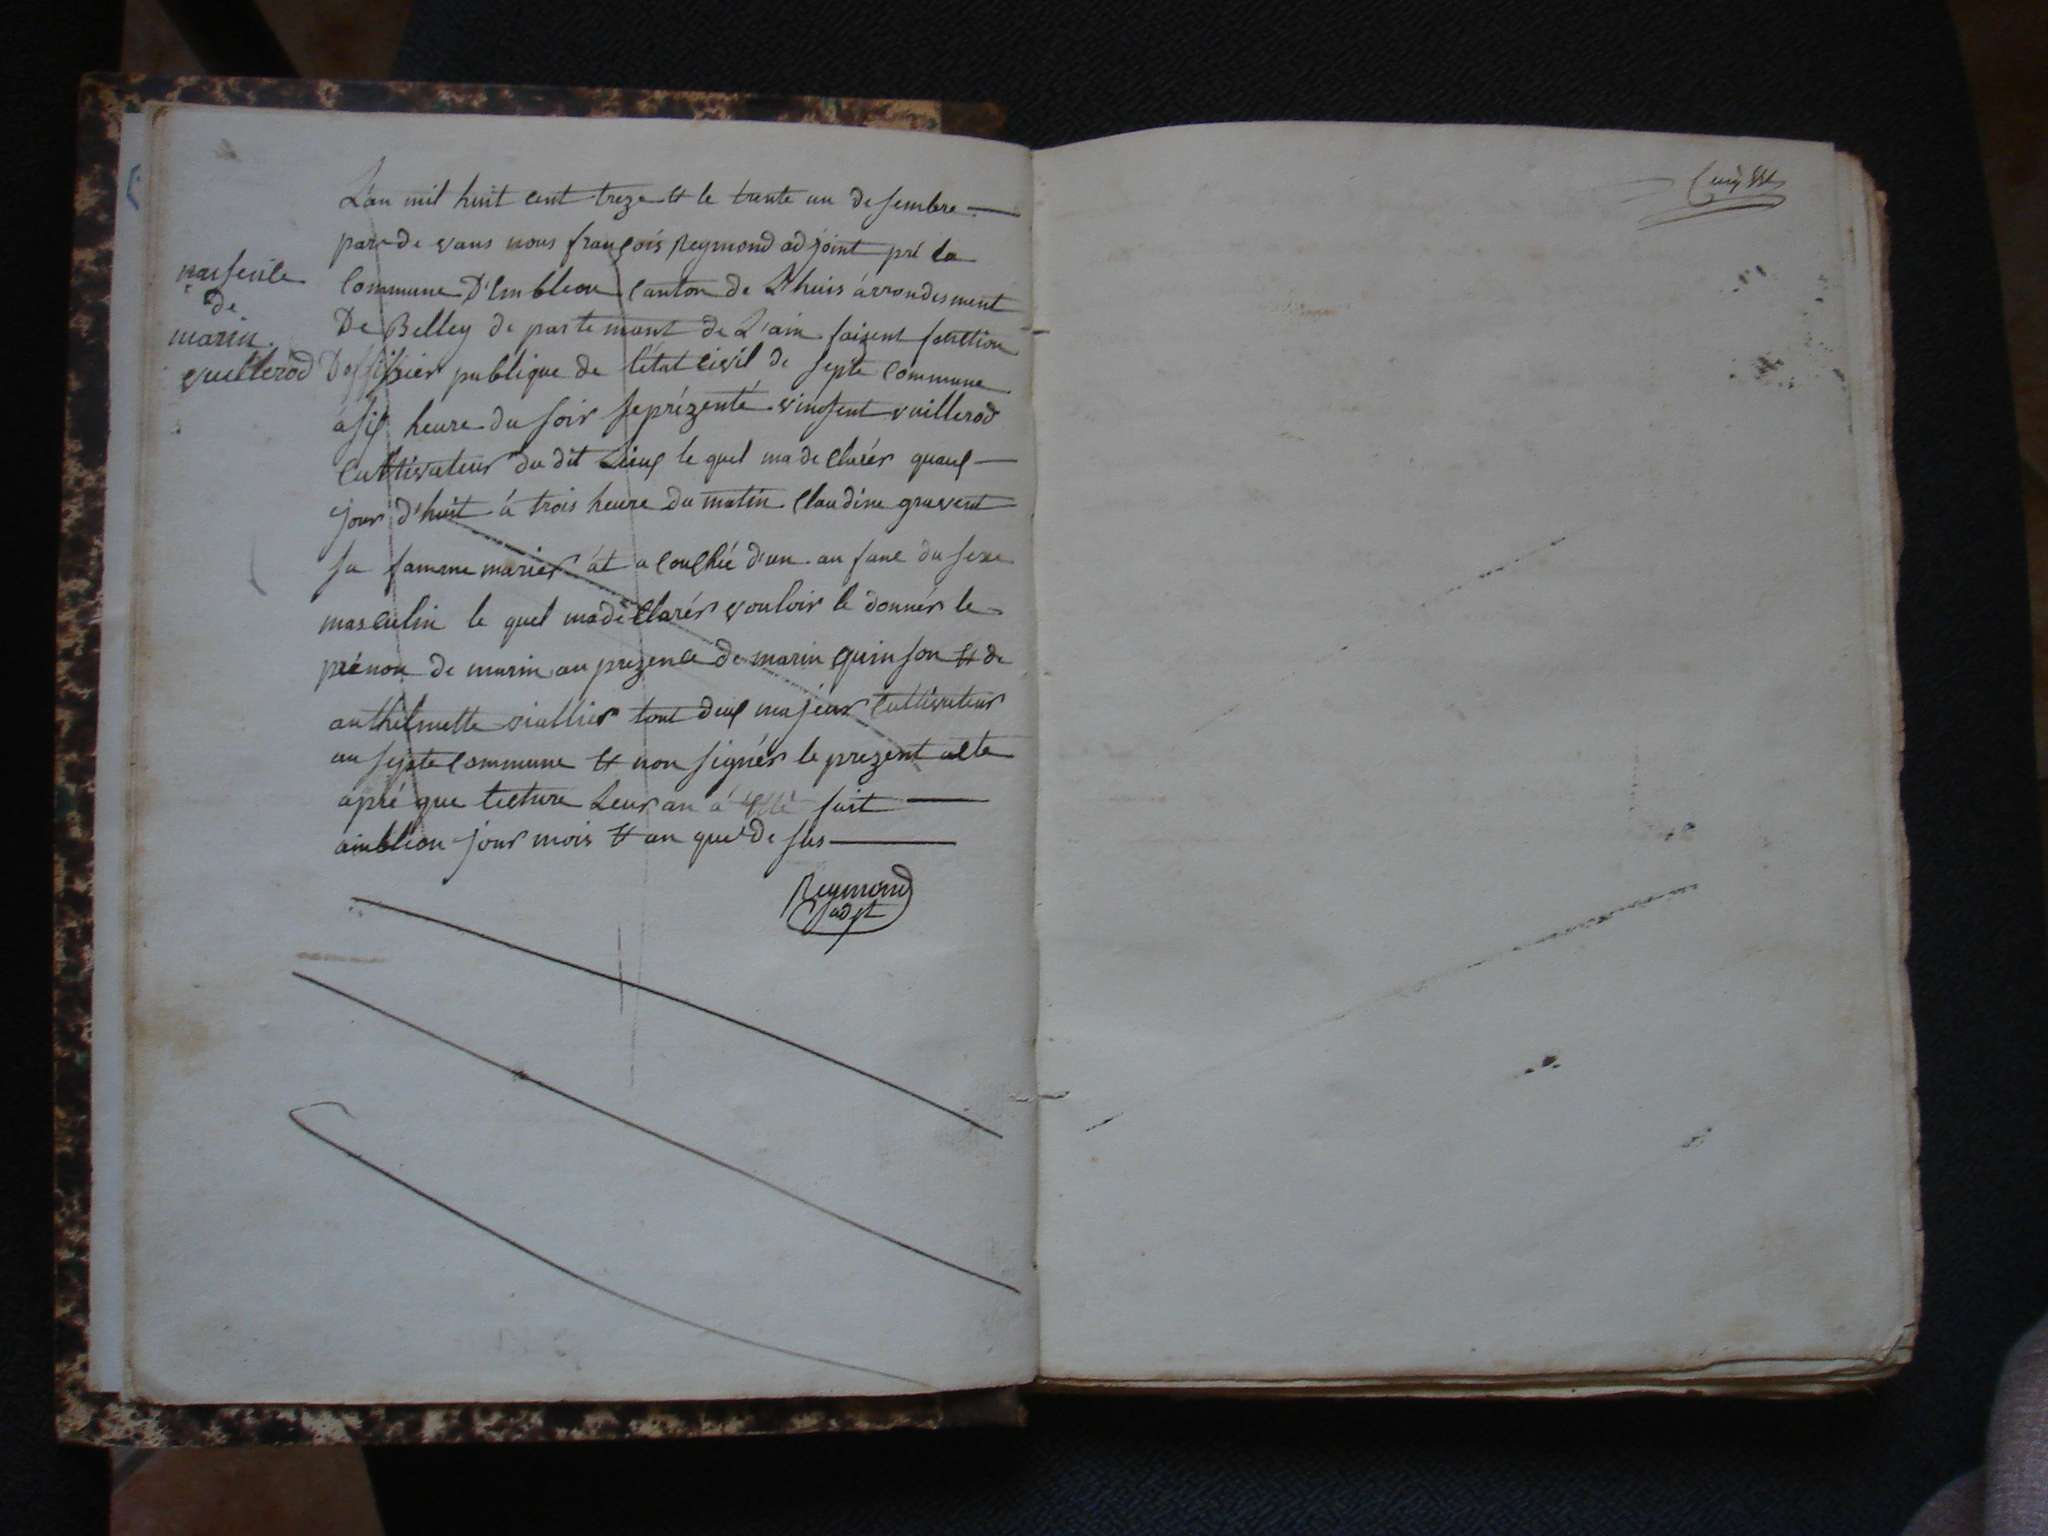 L'an mil huit cent treze et le trante un desembre
par de vans nous françois Reymond adjoint pré la
Commune D'Embleon Canton de Lhuis árrondisment
De Belley de partemant de L'ain faizent fonction
D'offissier publique de l'état civil de septe commune
á six heure du soir se prézenté vinsent vuillerod
Cultivateur du dit Lieux le quel ma de clarér quaux
jour d'huit á trois heure du matin Claudine gravent
sa famme mariér át a couchée d'un anfanc du sexe
masculin le quel ma de clarér vouloir le donnér le
prénon de marin an prezence de marin quinson et de
anthelmette tout deux majeur Cultivateur
an septe commune et non signér le prezent acte
apré que lecture Leur an á été fait
ainbléon jour mois et an que de sus
Reymond
adjt
naisencle
de
marin
vuillerod